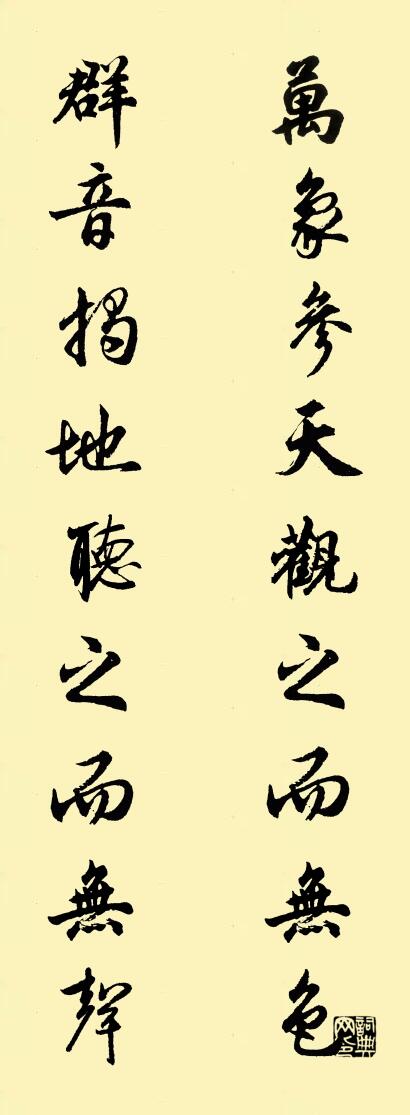 萬象參天觀之而無色
群音揭地聽之而無聲